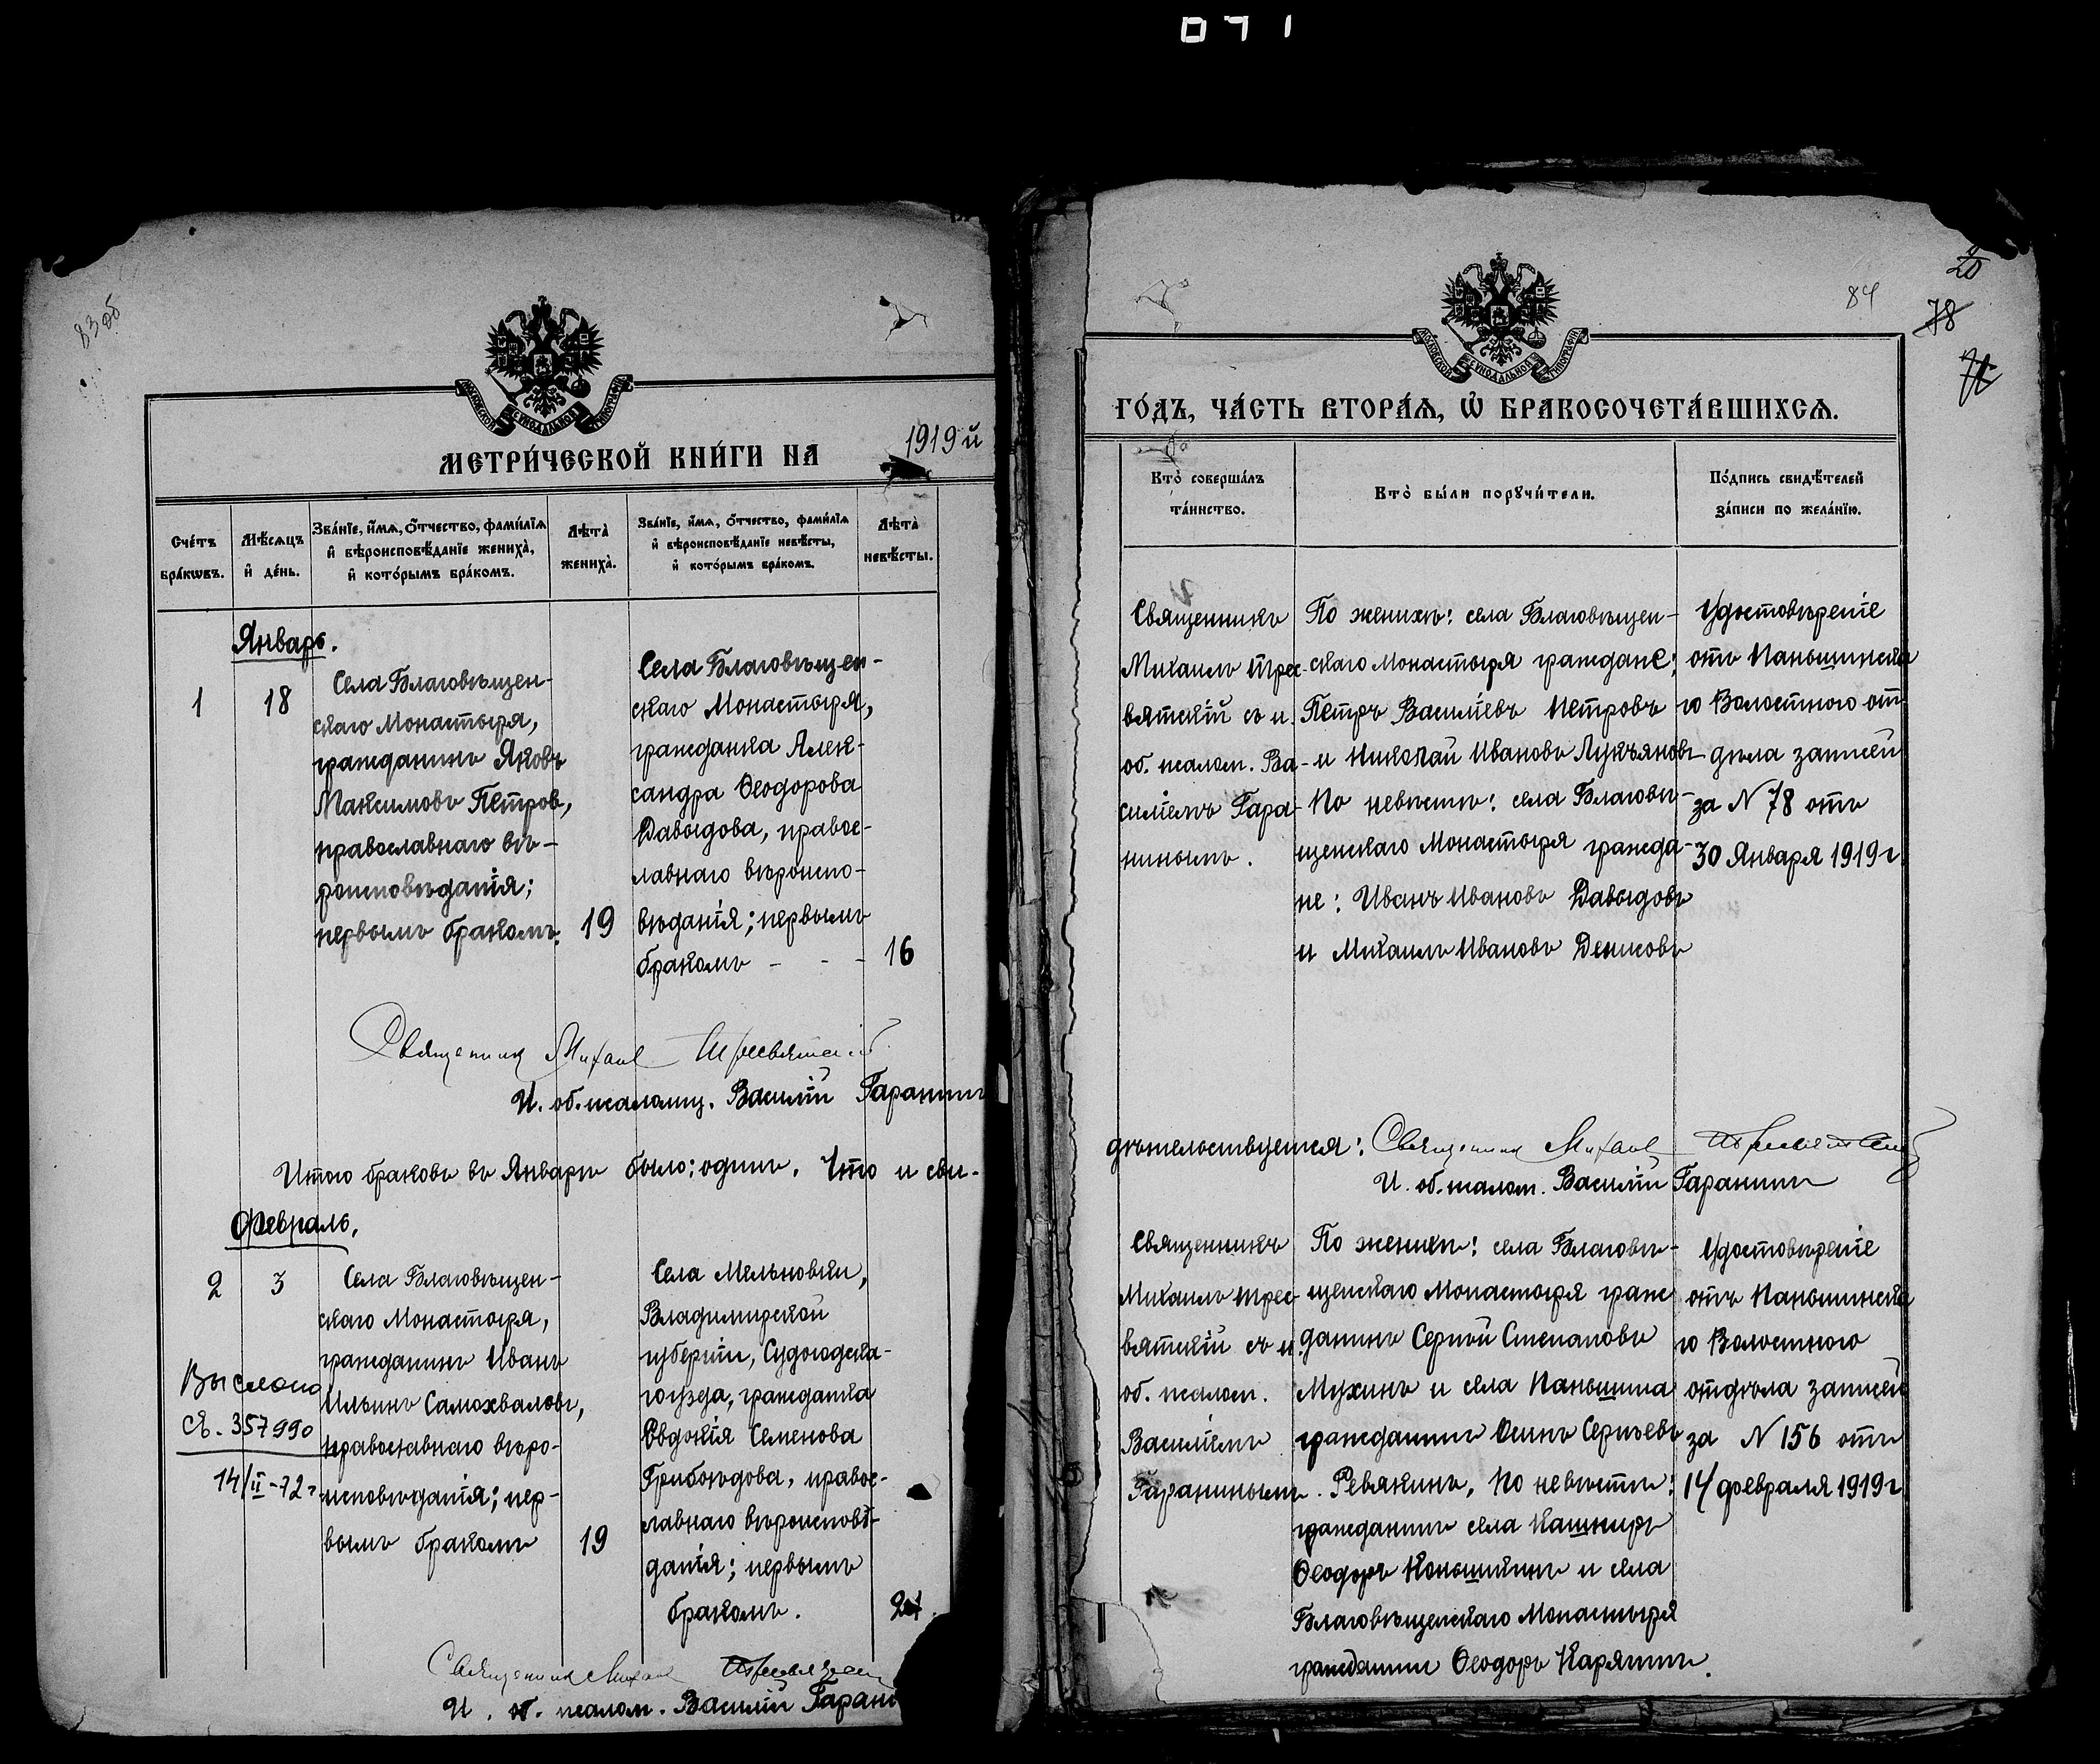 071
83 об
МОСКОВСКОЙ СѴНОДАЛЬНОЙ ТИПОГРАФІИ
МЕТРИ́ЧЕСКОЙ КНИ́ГИ НА 1919й
Сче́тъ бра́кѡвъ.
Мѣ́сѧцъ и҆ де́нь.
Зва́нїе, и҆́мѧ, ѻ҆́тчество, фами́лїѧ и҆ вѣроисповѣ́данїе жениха̀, и҆ кото́рымъ бра́комъ.
Лѣ́та жениха̀.
Зва́нїе, и҆́мѧ, ѻ҆́тчество, фами́лїѧ и҆ вѣроисповѣ́данїе невѣ́сты, и҆ кото́рымъ бра́комъ.
Лѣ́та невѣ́сты.
Январь.
1
18
Села Благовѣщен-
скаго Монастыря,
гражданинъ Яковъ
Максимовъ Петров,
православнаго вѣ-
роисповѣданія;
первымъ бракомъ.
19
Села Благовѣщен-
скаго Монастыря,
гражданка Алек-
сандра Ѳеодорова
Давыдова, правос-
лавнаго вѣроиспо-
вѣданія; первымъ
бракомъ - - -
16
Священникъ Михаил Тресвятскій
И. об. псаломщ. Василій Гаранинъ
Итого браковъ въ Январѣ было: одинъ. Что и сви-
Февраль.
2
3
Села Благовѣщен-
скаго Монастыря,
гражданинъ Иванъ
Ильинъ Самохваловъ,
православнаго вѣро-
исповѣданія; пер-
вымъ бракомъ
19
Выслано
Св. 357990
14/II-72 г
Села Мельновки,
Владимирской
губерніи, Судогодска-
го уѣзда, гражданка
Евдокія Семенова
Грибоѣдова, правос-
лавнаго вѣроисповѣ-
данія; первымъ
бракомъ.
Священникъ Михаил Тресвятскій
И. об. псалом. Василій Гарани
84
20
78
МОСКОВСКОЙ СѴНОДАЛЬНОЙ ТИПОГРАФІИ
ГО́ДЪ, ЧА́СТЬ ВТОРА́Ѧ, Ѽ БРАКОСОЧЕТА́ВШИХСѦ.
Кто̀ соверша́лъ та́инство.
Кто̀ бы́ли порꙋчи́тели.
По́дпись свидѣ́телей за́писи по жела́нїю.
Священникъ
Михаилъ Трес-
вятскій съ и.
об. псалом. Ва-
силіемъ Гара-
нинымъ.
По женихѣ: села Благовѣщен-
скаго Монастыря граждане:
Петръ Василіевъ Петровъ
и Николай Ивановъ Лукъяновъ
По невѣстѣ: села Благовѣ-
щенскаго Монастыря гражда-
не: Иванъ Ивановъ Давыдовъ
и Михаилъ Ивановъ Денисовъ
Удостовѣреніе
отъ Паньшинска
го Волостного от-
дѣла записей
за N 78 отъ
30 Января 1919 г
дѣтельствуется: Священникъ Михаил Тресвятскій
И. об. псалом. Василій Гаранинъ
Священникъ
Михаилъ Трес-
вятскій съ и.
об. псалом.
Василіемъ
Гаранинымъ.
По женихѣ: села Благовѣ-
щенскаго Монастыря граж
данинъ Сергѣй Степановъ
Мухинъ и села Паньшина
гражданинъ Осипъ Сергѣевъ
Ревякинъ, По невѣстѣ:
гражданинъ села Кашпиръ
Ѳеодоръ Коньшинъ и села
Благовѣщенскаго Монастыря
гражданинъ Ѳеодоръ Карягинъ.
Удостовѣреніе
отъ Паньшинска
го Волостного
отдѣла записей
за N 156 отъ
14 февраля 1919 г